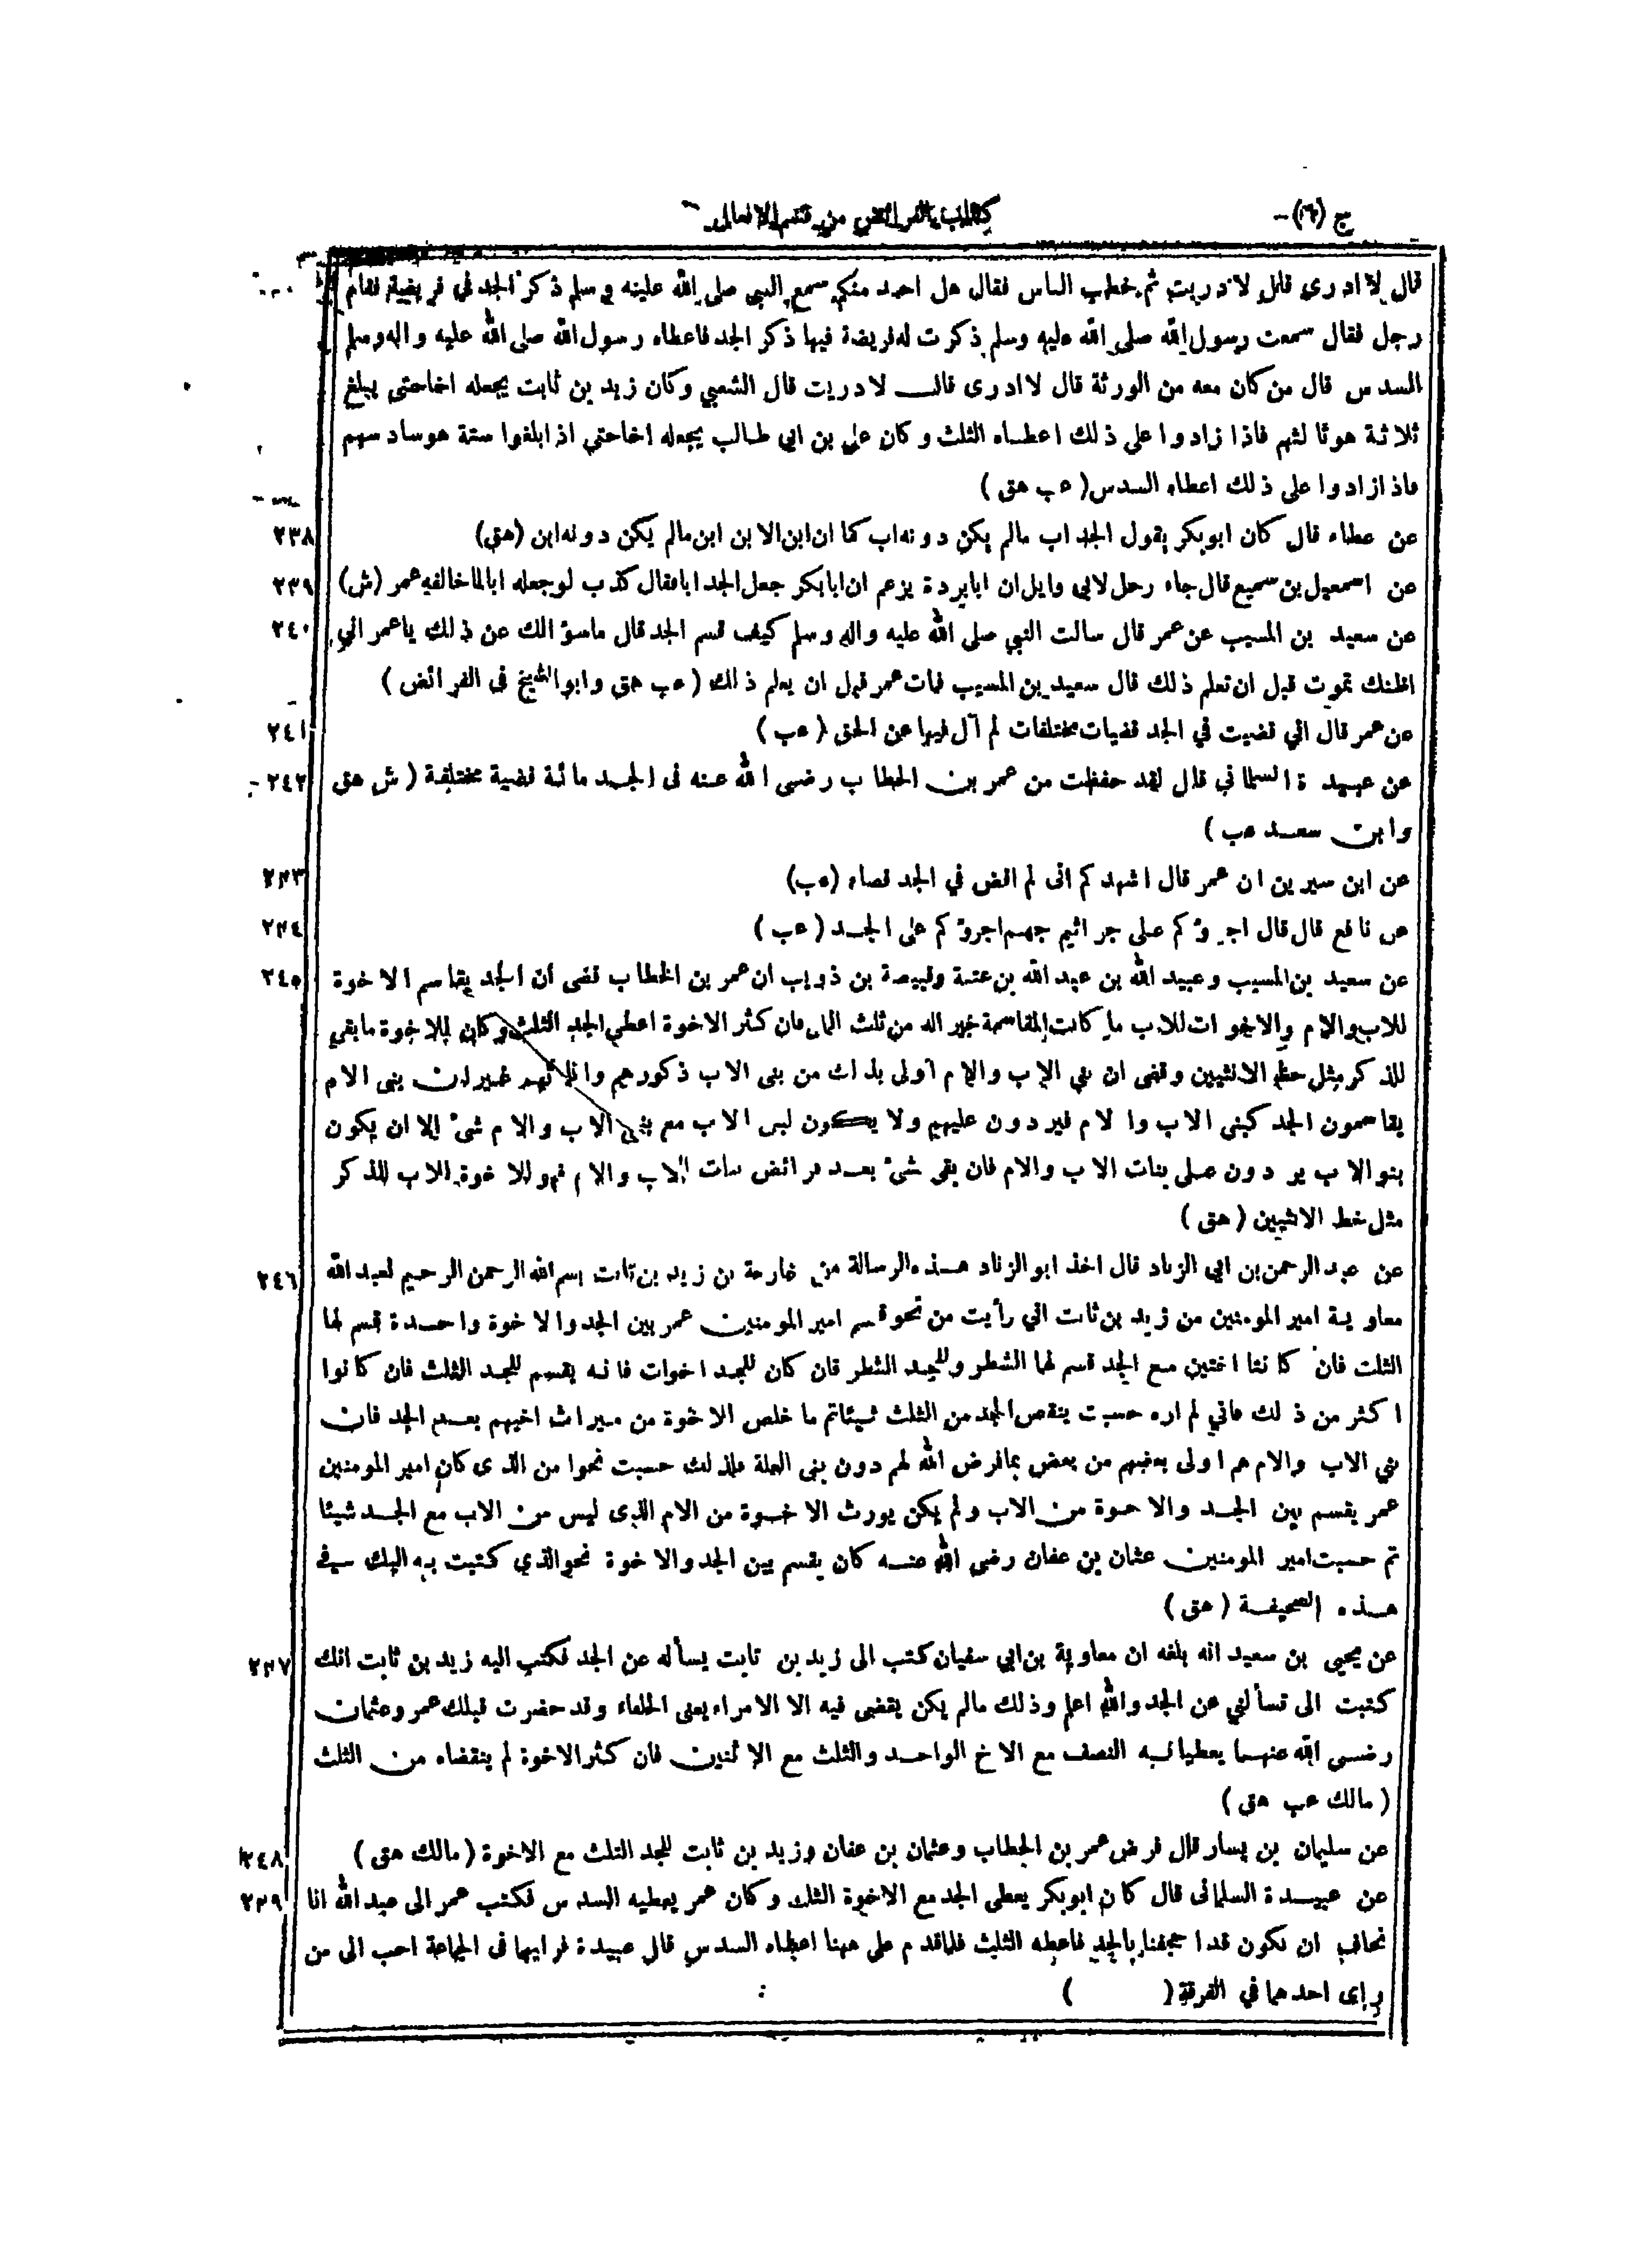 ج (٦)
كتاب الفرائض من قسم الافعال
قال لا ادرى قال لا دريت ثم خطب الناس فقال هل احد منكم سمع النبي صلى الله عليه وسلم ذكر الجد في فريضة فقام
رجل فقال سمعت رسول الله صلى الله عليه وسلم ذكرت له فريضة فيها ذكر الجد فاعطاه رسول الله صلى الله عليه واله وسلم
السدس قال من كان معه من الورثة قال لا ادرى قال لا دريت قال الشعبي وكان زيد بن ثابت يجعله اخا حتى يبلغ
ثلاثة هو ثالثهم فاذا زادوا على ذلك اعطاه الثلث وكان على بن ابي طالب يجعله اخا حتى اذا بلغوا ستة هو سادسهم
فاذا زادوا على ذلك اعطاه السدس (عب هق)
٢٣٨ عن عطاء قال كان ابوبكر يقول الجد اب مالم يكن دونه اب كما ان ابن الابن ابن مالم يكن دونه ابن (هق)
٢٣٩ عن اسمعيل بن سميع قال جاء رجل لابي وايل ان ابا بردة يزعم ان ابا بكر جعل الجد ابا فقال كذب لو جعله ابا لما خالفه عمر (ش)
٢٤٠ عن سعيد بن المسيب عن عمر قال سالت النبي صلى الله عليه واله وسلم كيف قسم الجد قال ماسؤالك عن ذلك ياعمر اني
اظنك تموت قبل ان تعلم ذلك قال سعيد بن المسيب فمات عمر قبل ان يعلم ذلك (عب هق وابو الشيخ فى الفرائض)
٢٤١ عن عمر قال اني قضيت في الجد قضيات مختلفات لم آل فيها عن الحق (عب)
٢٤٢ عن عبيدة السلماني قال لقد حفظت من عمر بن الخطاب رضى الله عنه فى الجد مائة قضية مختلفة (ش هق
وابن سعد عب)
٢٤٣ عن ابن سيرين ان عمر قال اشهدكم انى لم اقض في الجد قضاء (عب)
٢٤٤ عن نافع قال قال اجرؤكم على جراثيم جهنم اجرؤكم على الجد (عب)
٢٤٥ عن سعيد بن المسيب وعبيد الله بن عبد الله بن عتبة وقبيصة بن ذويب ان عمر بن الخطاب قضى ان الجد يقاسم الاخوة
للاب والام والاخوات للاب ما كانت المقاسمة خيرا له من ثلث المال فان كثر الاخوة اعطى الجد الثلث وكان للاخوة مابقي
للذكر مثل حظ الانثيين وقضى ان بني الاب والام اولى بذلك من بنى الاب ذكورهم واناثهم غير ان بنى الاب
يقاسمون الجد كبنى الاب والام فيردون عليهم ولا يكون لبنى الاب مع بنى الاب والام شئ الا ان يكون
بنو الاب يردون على بنات الاب والام فان بقى شئ بعد فرائض بنات الاب والام فهو للاخوة للاب للذكر
مثل حظ الانثيين (هق)
٢٤٦ عن عبد الرحمن بن ابى الزناد قال اخذ ابو الزناد هذه الرسالة من خارجة بن زيد بن ثابت بسم الله الرحمن الرحيم لعبد الله
معاوية امير المومنين من زيد بن ثابت اني رأيت من نحو قسم امير المومنين عمر بين الجد والاخوة واحدة قسم لها
الثلث فان كانتا اختين مع الجد قسم لهما الشطر وللجد الشطر فان كان للجد اخوات فانه يقسم للجد الثلث فان كانوا
اكثر من ذلك فاني لم اره حسبت ينقص الجد من الثلث شيئا ثم ما خلص الاخوة من ميراث اخيهم بعد الجد فان
بني الاب والام هم اولى بعضهم من بعض بما فرض الله لهم دون بنى العلة فلذلك حسبت نحوا من الذى كان امير المومنين
عمر يقسم بين الجد والاخوة من الاب ولم يكن يورث الاخوة من الام الذى ليس من الاب مع الجد شيئا
ثم حسبت امير المومنين عثمان بن عفان رضى الله عنه كان يقسم بين الجد والاخوة نحو الذي كتبت به اليك في
هذه الصحيفة (هق)
٢٤٧ عن يحيى بن سعيد انه بلغه ان معاوية بن ابي سفيان كتب الى زيد بن ثابت يسأله عن الجد فكتب اليه زيد بن ثابت انك
كتبت الى تسألني عن الجد والله اعلم وذلك مالم يكن يقضى فيه الا الامراء يعنى الخلفاء وقد حضرت قبلك عمر وعثمان
رضى الله عنهما يعطيانه النصف مع الاخ الواحد والثلث مع الاثنين فان كثر الاخوة لم ينقضاه من الثلث
(مالك عب هق)
٢٤٨ عن سليمان بن يسار قال فرض عمر بن الخطاب وعثمان بن عفان وزيد بن ثابت للجد الثلث مع الاخوة (مالك هق)
٢٤٩ عن عبيدة السلمانى قال كان ابوبكر يعطى الجد مع الاخوة الثلث وكان عمر يعطيه السدس فكتب عمر الى عبد الله انا
نخاف ان نكون قد اجحفنا بالجد فاعطه الثلث فلما قدم على ههنا اعطاه السدس قال عبيدة فرايهما فى الجماعة احب الى من
راى احدهما في الفرقة ( )